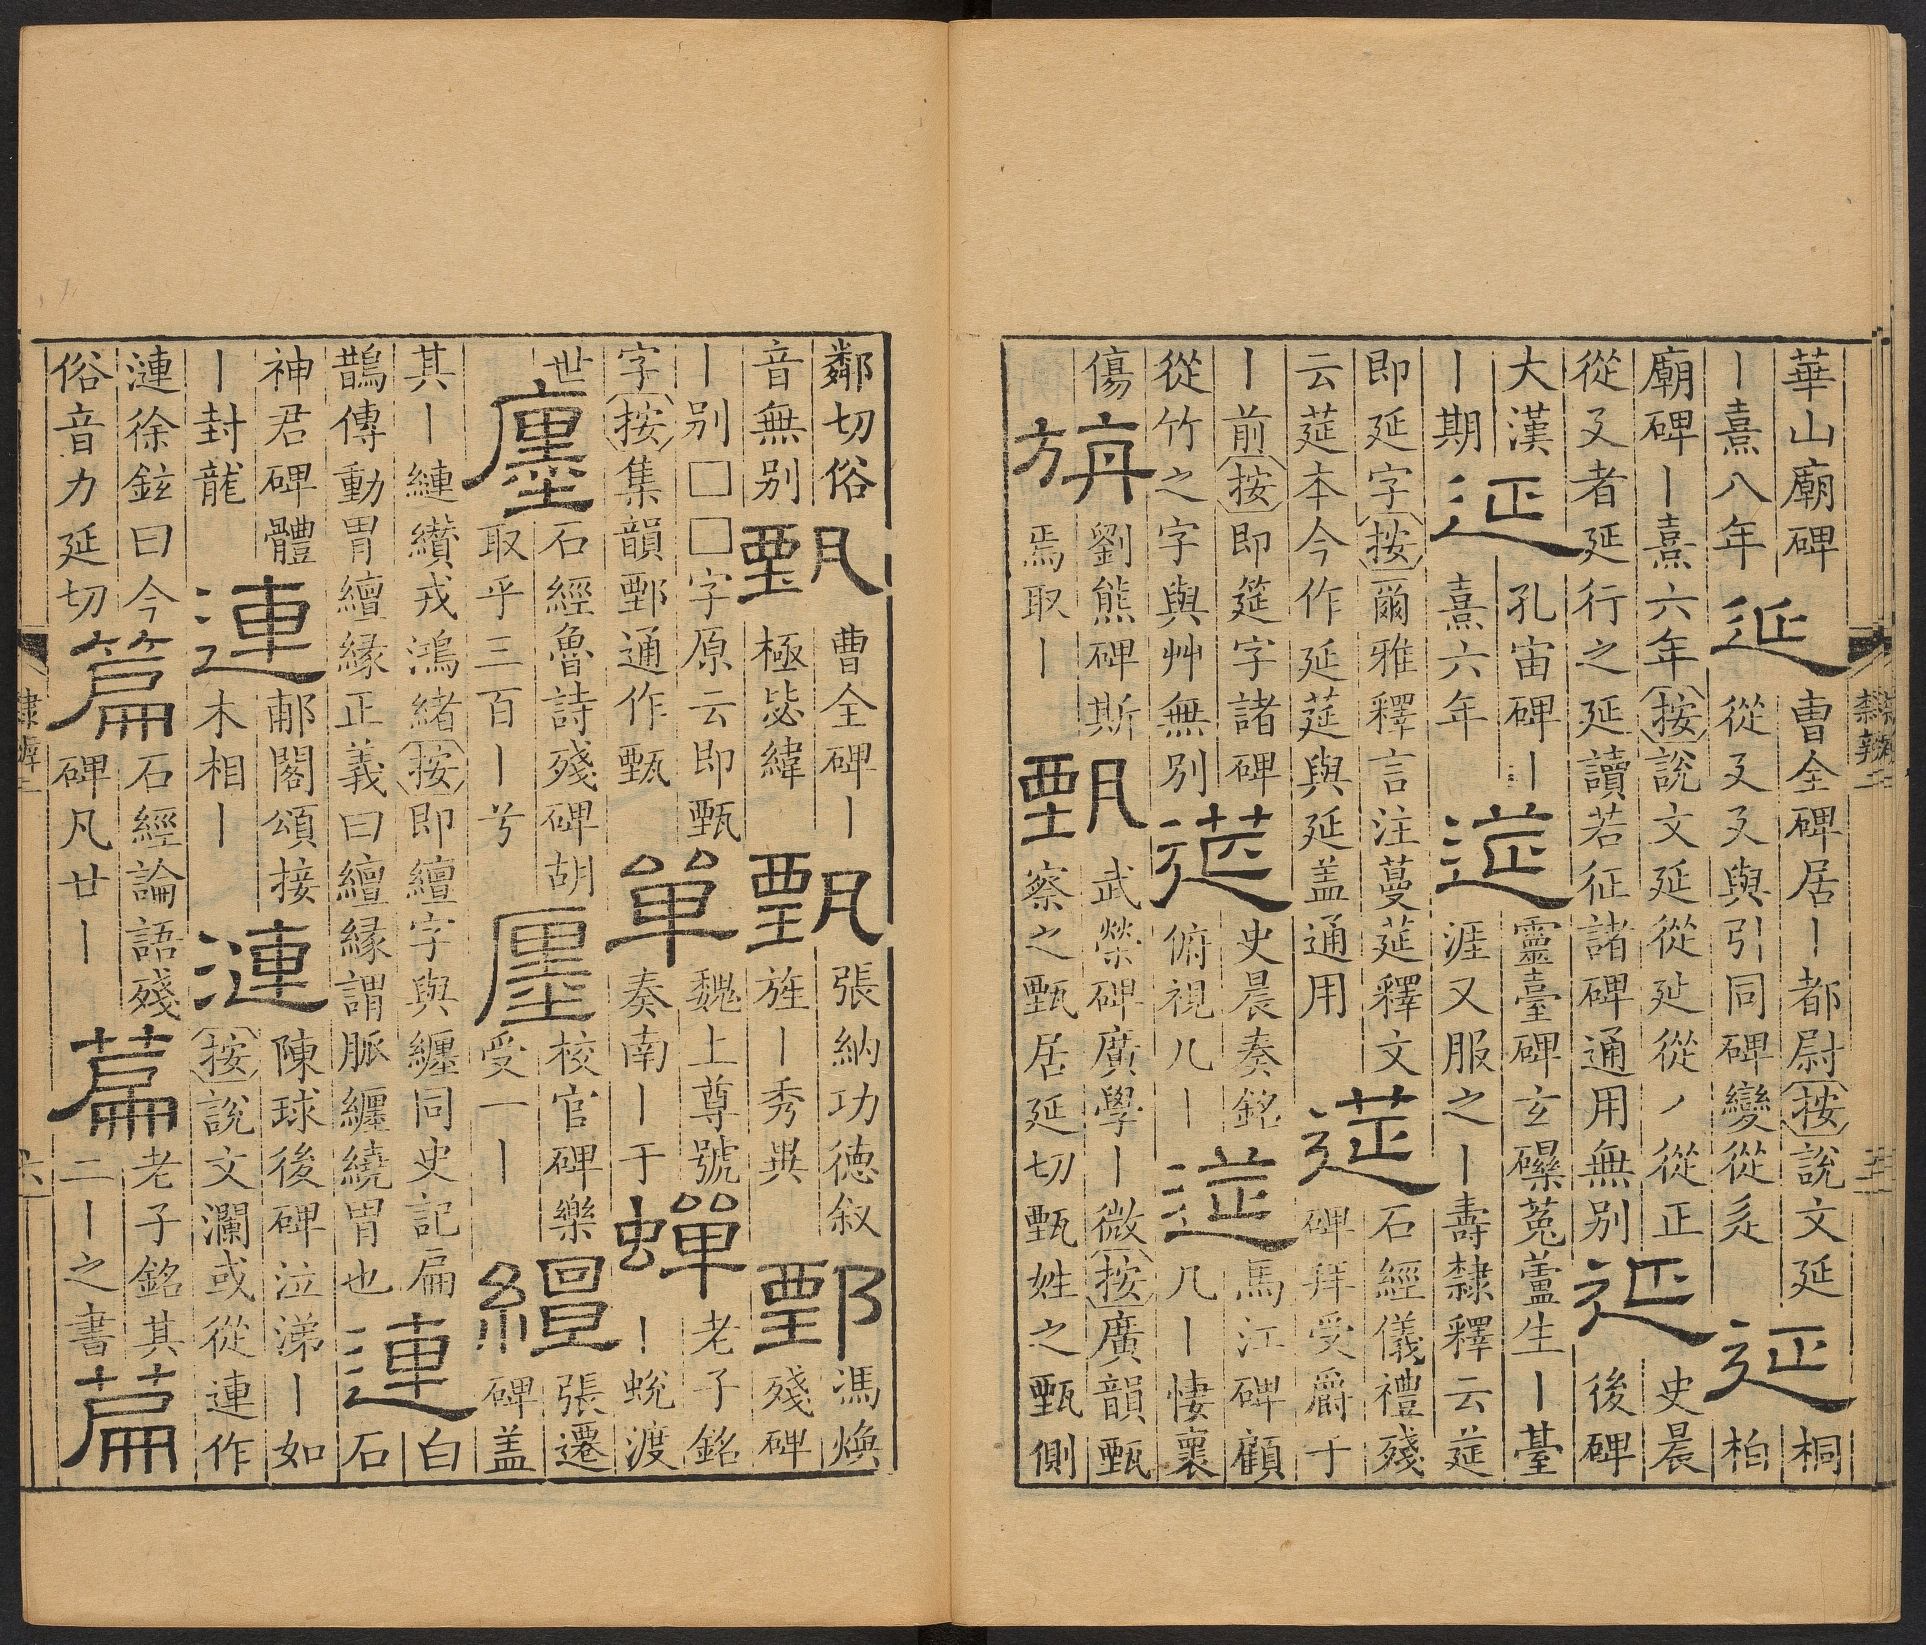 華山廟碑丨熹八年延曹全碑居丨都尉按說文延從廴廴與引同碑變從辵延桐柏
廟碑丨熹六年按說文延從㢟從丿從正從廴者延行之延讀若征諸碑通用無別延史晨後碑
大漢丨期延孔宙碑丨熹六年莚靈臺碑玄礫菟蘆生丨䑓涯又服之丨壽隸釋云莚
即延字按爾雅釋言注蔓莚釋文云莚本今作延莚與延盖通用莚石經儀禮殘碑拜受爵于
丨前按即筵字諸碑從竹之字與艸無別莚史晨奏銘俯視几丨莚馬江碑顧几丨悽褱
傷旃劉熊碑斯焉取丨甄武榮碑廣學丨微按廣韻甄察之甄居延切甄姓之甄側
隸辨二
鄰切俗音無別甄曹全碑丨極毖緯甄張納功德叙旌丨秀異鄄馮煥殘碑
丨別□□字原云即甄字按集韻鄄通作甄單魏上尊號奏南丨于蟬老子銘丨蛻渡
世廛石經魯詩殘碑胡取乎三百丨兮廛校官碑樂受一丨繵張遷碑盖
其丨縺纘戎鴻緒按即繵字與纏同史記扁鵲傳動胃繵緣正義曰繵緣謂脈纏繞胃也連白石
神君碑體丨封龍連郙閣頌接木相丨漣陳球後碑泣涕丨如按說文瀾或從連作
漣徐鉉曰今俗音力延切篇石經論語殘碑凡廿丨篇老子銘其二丨之書篇
隸辨二
六